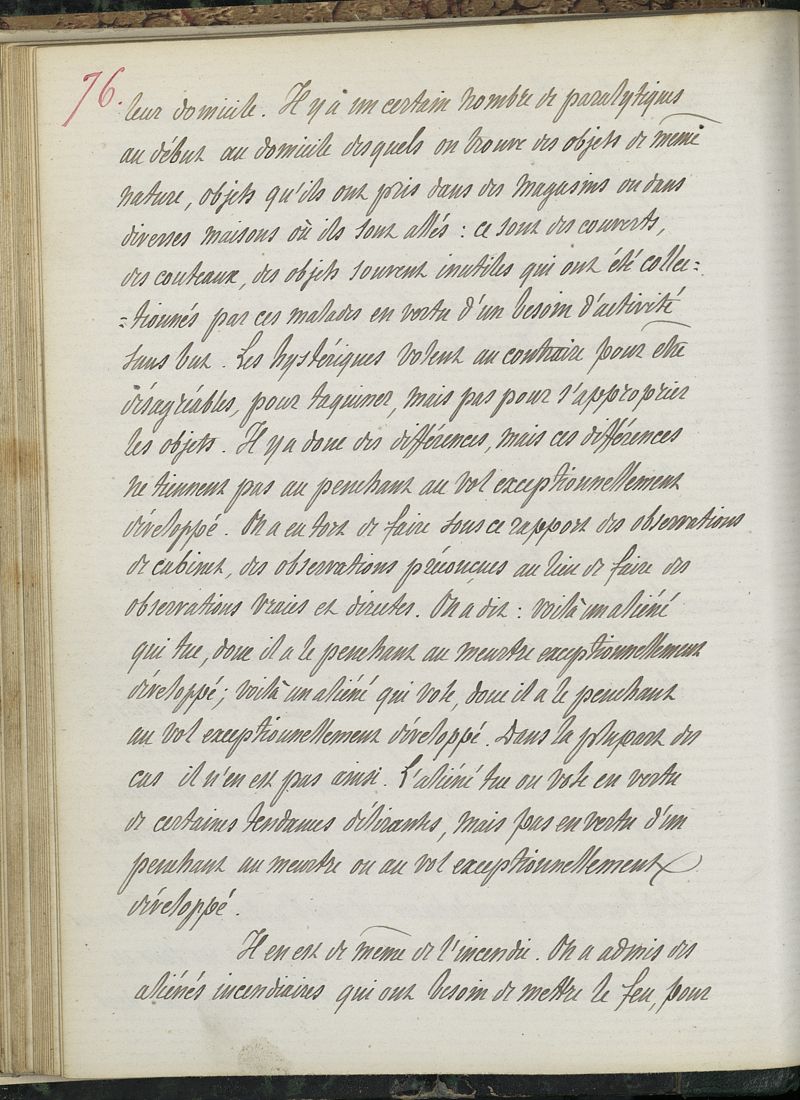 76.
leur domicile. Il y a un certain nombre de paralytiques
au début au domicile desquels on trouve des objets de même
nature, objets qu'ils ont pris dans des magasins ou dans
diverses maisons où ils sont allés : ce sont des couverts,
des couteaux, des objets souvent inutiles qui ont été collec=
=tionnés par ces malades en vertu d'un besoin d'activité
sans but. Les hystériques volent au contraire pour être
désagréables, pour taquiner, mais pas pour s'approprier
les objets. Il y a donc des différences, mais ces différences
ne tiennent pas au penchant au vol exceptionnellement
développé. On a eu tort de faire sous ce rapport des observations
de cabinet, des observations préconçues au lieu de faire des
observations vraies et directes. On a dit : voilà un aliéné
qui tue, donc il a le penchant au meurtre exceptionnellement
développé ; voilà un aliéné qui vole, donc il a le penchant
au vol exceptionnellement développé. Dans la plupart des
cas il n'en est pas ainsi. L'aliéné tue ou vole en vertu
de certaines tendances délirantes, mais pas en vertu d'un
penchant au meurtre ou au vol exceptionnellement
développé.
Il en est de même de l'incendie. On a admis des
aliénés incendiaires qui ont besoin de mettre le feu, pour